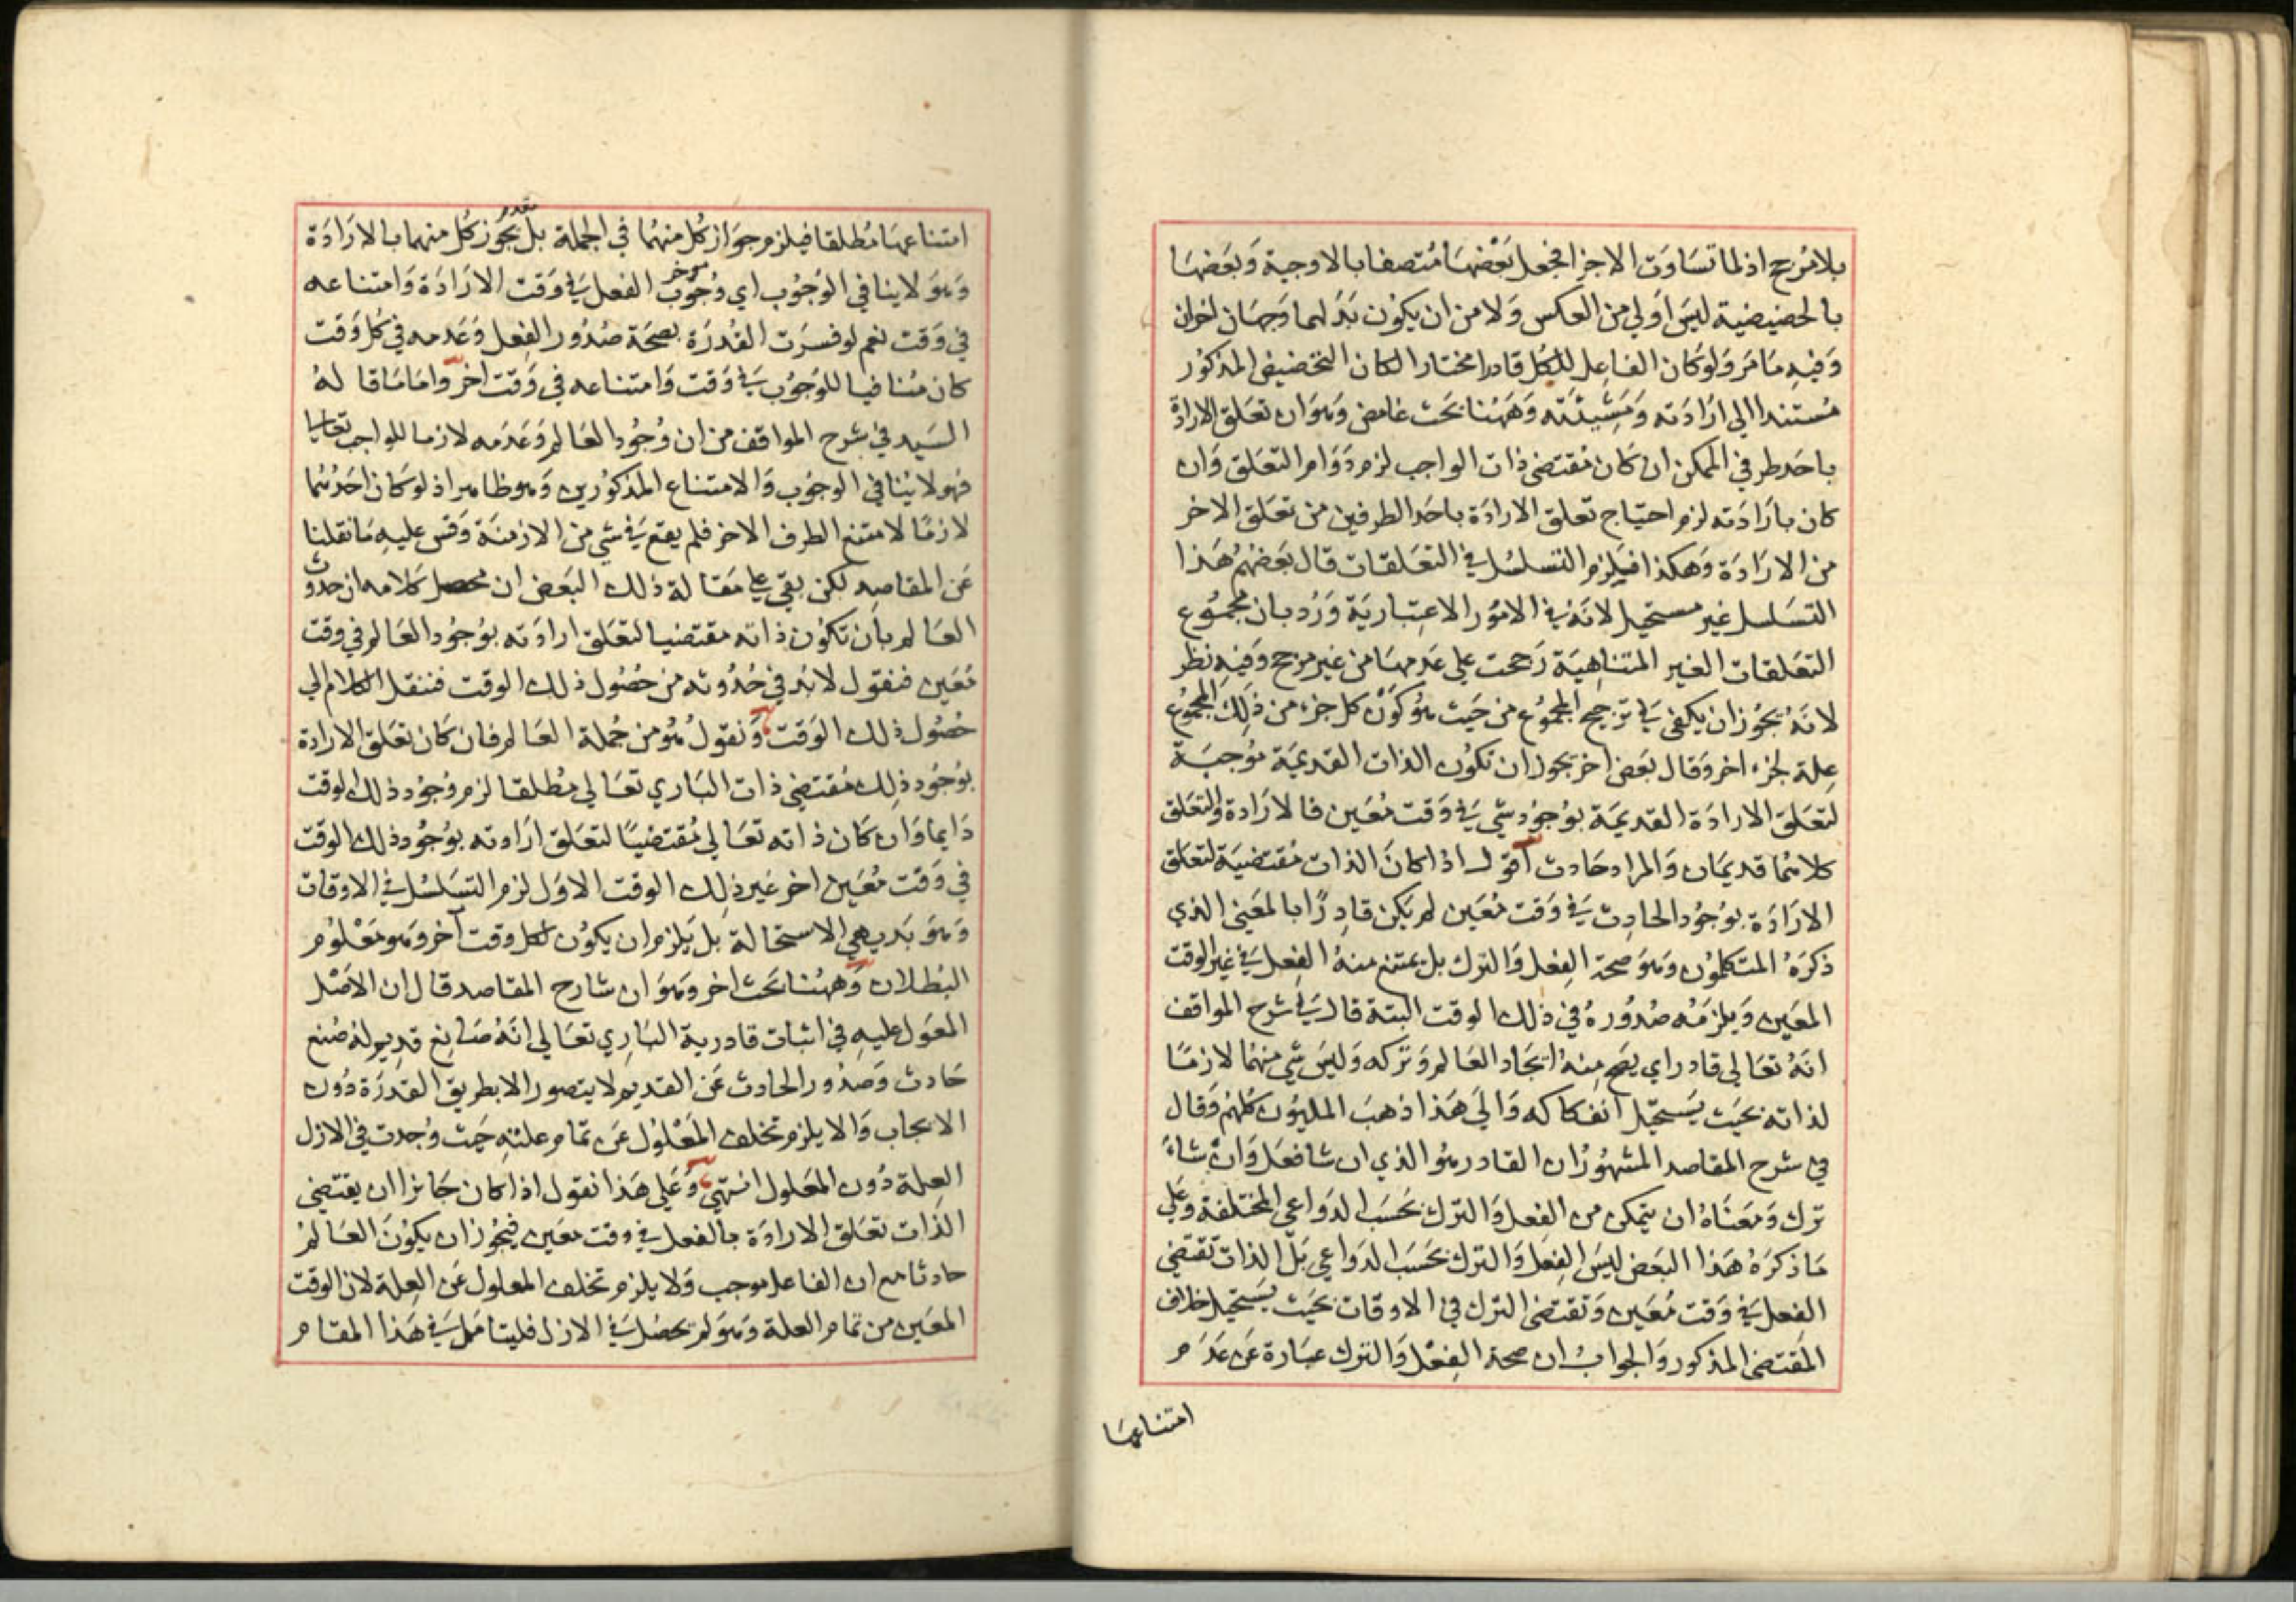 بلا مرجح اذ لما تساوت الاجزا فجعل بعضها متصفا بالاوجية وبعضها
بالحضيضية ليس اولي من العكس ولا من ان يكون بدلهما وجهان اخران
وفيه ما مر ولو كان الفاعل للكل قادرا مختارا لكان التخضيض المذكور
مستندا الي ارادته ومشيئته وههنا بحث غامض وهو ان تعلق الارادة
باحد طرفي الممكن ان كان مقتضي ذات الواجب لزم دوام التعلق وان
كان بارادته لزم احتياج تعلق الارادة باحد الطرفين من تعلق الاخر
من الارادة وهكذا فيلزم التسلسل في التعلقات قال بعضهم هذا
التسلسل غير مستحيل لانه في الامور الاعتبارية ورد بان مجموع
التعلقات الغير المتناهية رجحت علي عدمها من غير مرجح وفيه نظر
لانه يجوز ان يكفي في ترجيح المجموع من حيث هو كون كل جزء من ذلك المجموع
علة لجزء اخر وقال بعض اخر يجوز ان تكون الذات القديمة موجبة
لتعلق الارادة القديمة بوجود شي في وقت معين فالارادة والتعلق
كلاهما قديمان والمراد حادث اقول اذا كان الذات مقتضية لتعلق
الارادة بوجود الحادث في وقت معين لم يكن قادرا بالمعني الذي
ذكره المتكلمون وهو صحة الفعل والترك بل يمتنع منه الفعل في غير الوقت
المعين ويلزمه صدوره في ذلك الوقت البتة قال في شرح المواقف
انه تعالي قادر اي يصح منه ايجاد العالم وتركه وليس شي منهما لازما
لذاته بحيث يستحيل انفكاكه والي هذا ذهب المليون كلهم وقال
في شرح المقاصد المشهور ان القادر هو الذي ان شا فعل وان شاء
ترك ومعناه ان يتمكن من الفعل والترك بحسب الدواعي المختلفة وعلي
ما ذكره هذا البعض ليس الفعل والترك بحسب الدواعي بل الذات تقتضي
الفعل في وقت معين وتقتضي الترك في الاوقات بحيث يستحيل خلاف
المقتضي المذكور والجواب ان صحة الفعل والترك عبارة عن عدم
امتناعها
امتناعها مطلقا فيلزم جواز كل منهما في الجملة بل يجوز كل منهما بالارادة
مقدم
وهو لا ينافي الوجوب اي وجوب الفعل في وقت الارادة وامتناعه
موخر
في وقت نعم لو فسرت القدرة بصحة صدور الفعل وعدمه في كل وقت
كان منافيا للوجوب في وقت وامتناعه في وقت اخر واما ما قاله
السيد في شرح المواقف من ان وجود العالم وعدمه لازما للواجب تعالي
فهو لا ينافي الوجوب والامتناع المذكورين وهو ظاهر اذ لو كان احدهما
لازما لامتنع الطرف الاخر فلم يقع في شي من الازمنة وقس عليه ما نقلنا
عن المقاصد لكن بقي علي مقالة ذلك البعض ان محصل كلامه ان حدوث
العالم بان تكون ذاته مقتضيا لتعلق ارادته بوجود العالم في وقت
معين فنقول لا بد في حدوثه من حصول ذلك الوقت فننقل الكلام الي
حصول ذلك الوقت ونقول هو من جملة العالم فان كان تعلق الارادة
بوجود ذلك مقتضي ذات الباري تعالي مطلقا لزم وجود ذلك الوقت
دايما وان كان ذاته تعالي مقتضيا لتعلق ارادته بوجود ذلك الوقت
في وقت معين اخر غير ذلك الوقت الاول لزم التسلسل في الاوقات
وهو بديهي الاستحالة بل يلزم ان يكون لكل وقت آخر وهو معلوم
البطلان وههنا بحث اخر وهو ان شارح المقاصد قال ان الاصل
المعول عليه في اثبات قادرية الباري تعالي انه صانع قديم له صنع
حادث وصدور الحادث عن القديم لا يتصور الا بطريق القدرة دون
الايجاب والا يلزم تخلف المعلول عن تمام علته حيث وجدت في الازل
العلة دون المعلول انتهي وعلي هذا نقول اذا كان جائزا ان يقتضي
الذات تعلق الارادة بالفعل في وقت معين فيجوز ان يكون العالم
حادثا مع ان الفاعل موجب ولا يلزم تخلف المعلول عن العلة لان الوقت
المعين من تمام العلة وهو لم يحصل في الازل فليتامل في هذا المقام